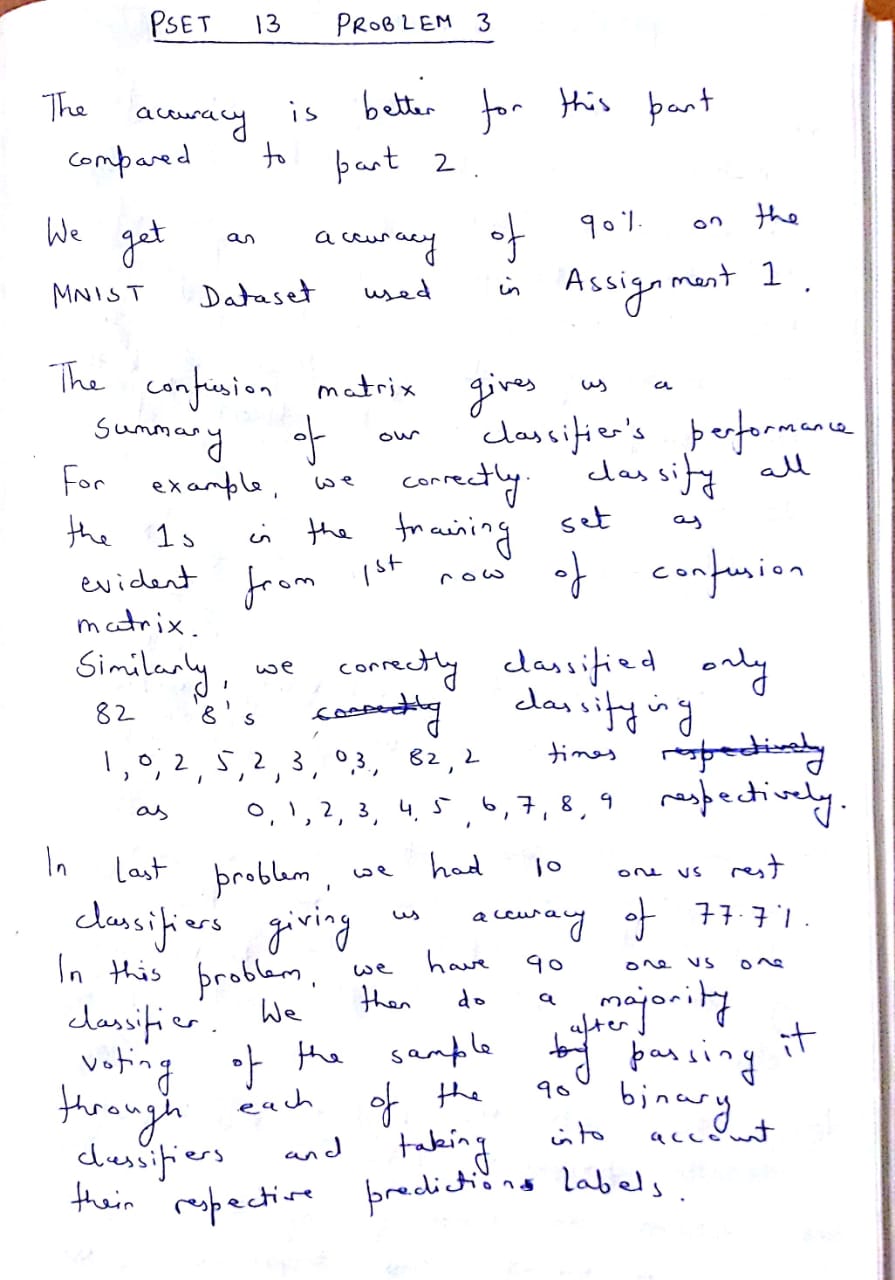 PSET 13 PROBLEM 3
The accuracy is better for this part
compared to part 2.
We get an accuracy of 90% on the
MNIST Dataset used in Assignment 1.
The confusion matrix gives us a
summary of our classifier's performance
For example, we correctly. classify all
the 1s in the training set as
evident from 1st row of confusion
matrix.
Similarly, we correctly classified only
82 '8's correctly classifying
1, 0, 2, 5, 2, 3, 0,3, 82, 2 times respectively
as 0, 1, 2, 3, 4, 5, 6, 7, 8, 9 respectively.
In last problem, we had 10 one vs rest
classifiers giving us accuracy of 77.7%.
In this problem, we have 90 one vs one
classifier. We then do a majority
voting of the sample by after passing it
through each of the 90 binary
classifiers and taking into account
their respective predictions labels.